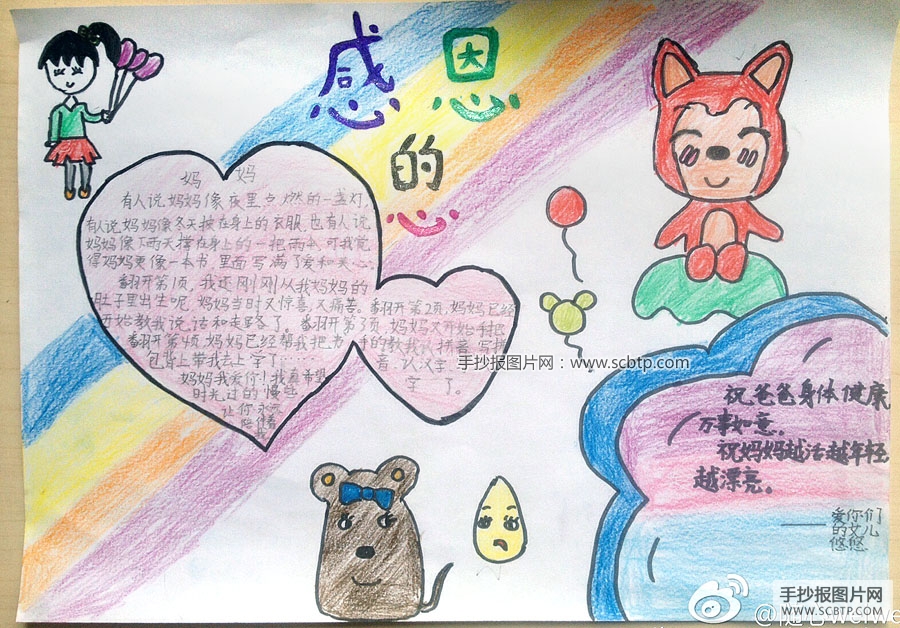 感恩
的
妈 妈
有人说妈妈像夜里点燃的一盏灯,
有说妈妈像冬天披在身上的衣服,也有人说
妈妈像下雨天撑在身上的一把雨伞,可我觉
得妈妈更像一本书,里面写满了爱和关心。
翻开第1页,我还刚刚从我妈妈的
肚子里出生呢,妈妈当时又惊喜,又痛苦。翻开第2页,妈妈已经
开始教我说话和走路了。翻开第3页,妈妈又开始
翻开第4页,妈妈已经帮我把 的教我认拼音,写拼
包背上带我去上学了…… 音,认汉字
字了。
妈妈我爱你!我真希望
时光过的慢些
让你永
手抄报图片网:www.scbtp.com
祝爸爸身体健康
万事如意。
祝妈妈越活越年轻
越漂亮。
——爱你们
的女儿
悠悠
手抄报图片网
WWW.SCBTP.COM